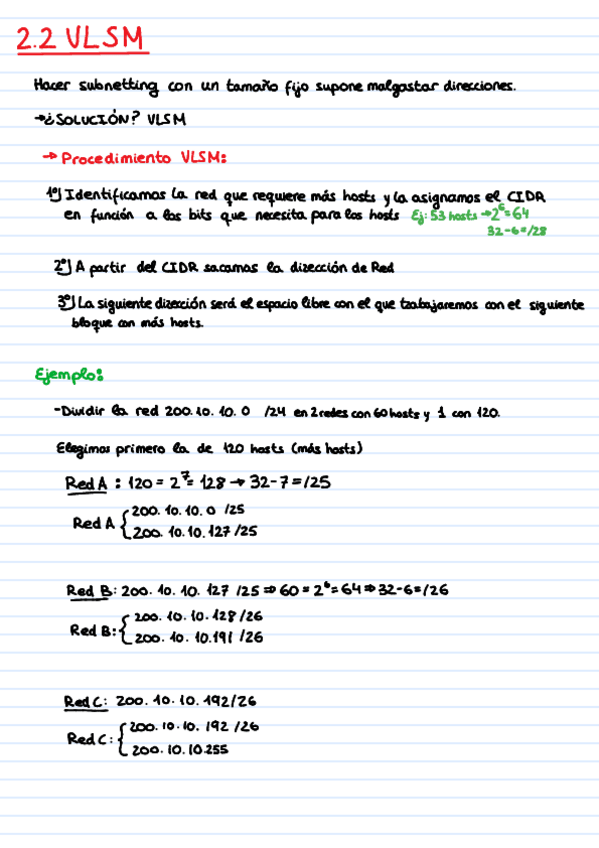 2.2 VLSM
Hacer subnetting con un tamaño fijo supone malgastar direcciones.
→¿SOLUCIÓN? VLSM
→ Procedimiento VLSM:
1º) Identificamos la red que requiere más hosts y la asignamos el CIDR
en función a los bits que necesita para los hosts Ej: 53 hosts → 2^6 = 64
32-6=/28
2º) A partir del CIDR sacamos la dirección de Red
3º) La siguiente dirección será el espacio libre con el que trabajaremos con el siguiente
bloque con más hosts.
Ejemplo:
-Dividir la red 200.10.10.0 /24 en 2 redes con 60 hosts y 1 con 120.
Elegimos primero la de 120 hosts (más hosts)
Red A : 120 = 2^7 = 128 → 32-7=/25
Red A { 200.10.10.0 /25
200.10.10.127 /25
Red B: 200.10.10.127 /25 ⇒ 60 = 2^6 = 64 ⇒ 32-6=/26
Red B: { 200.10.10.128 /26
200.10.10.191 /26
Red C: 200.10.10.192/26
Red C: { 200.10.10.192 /26
200.10.10.255